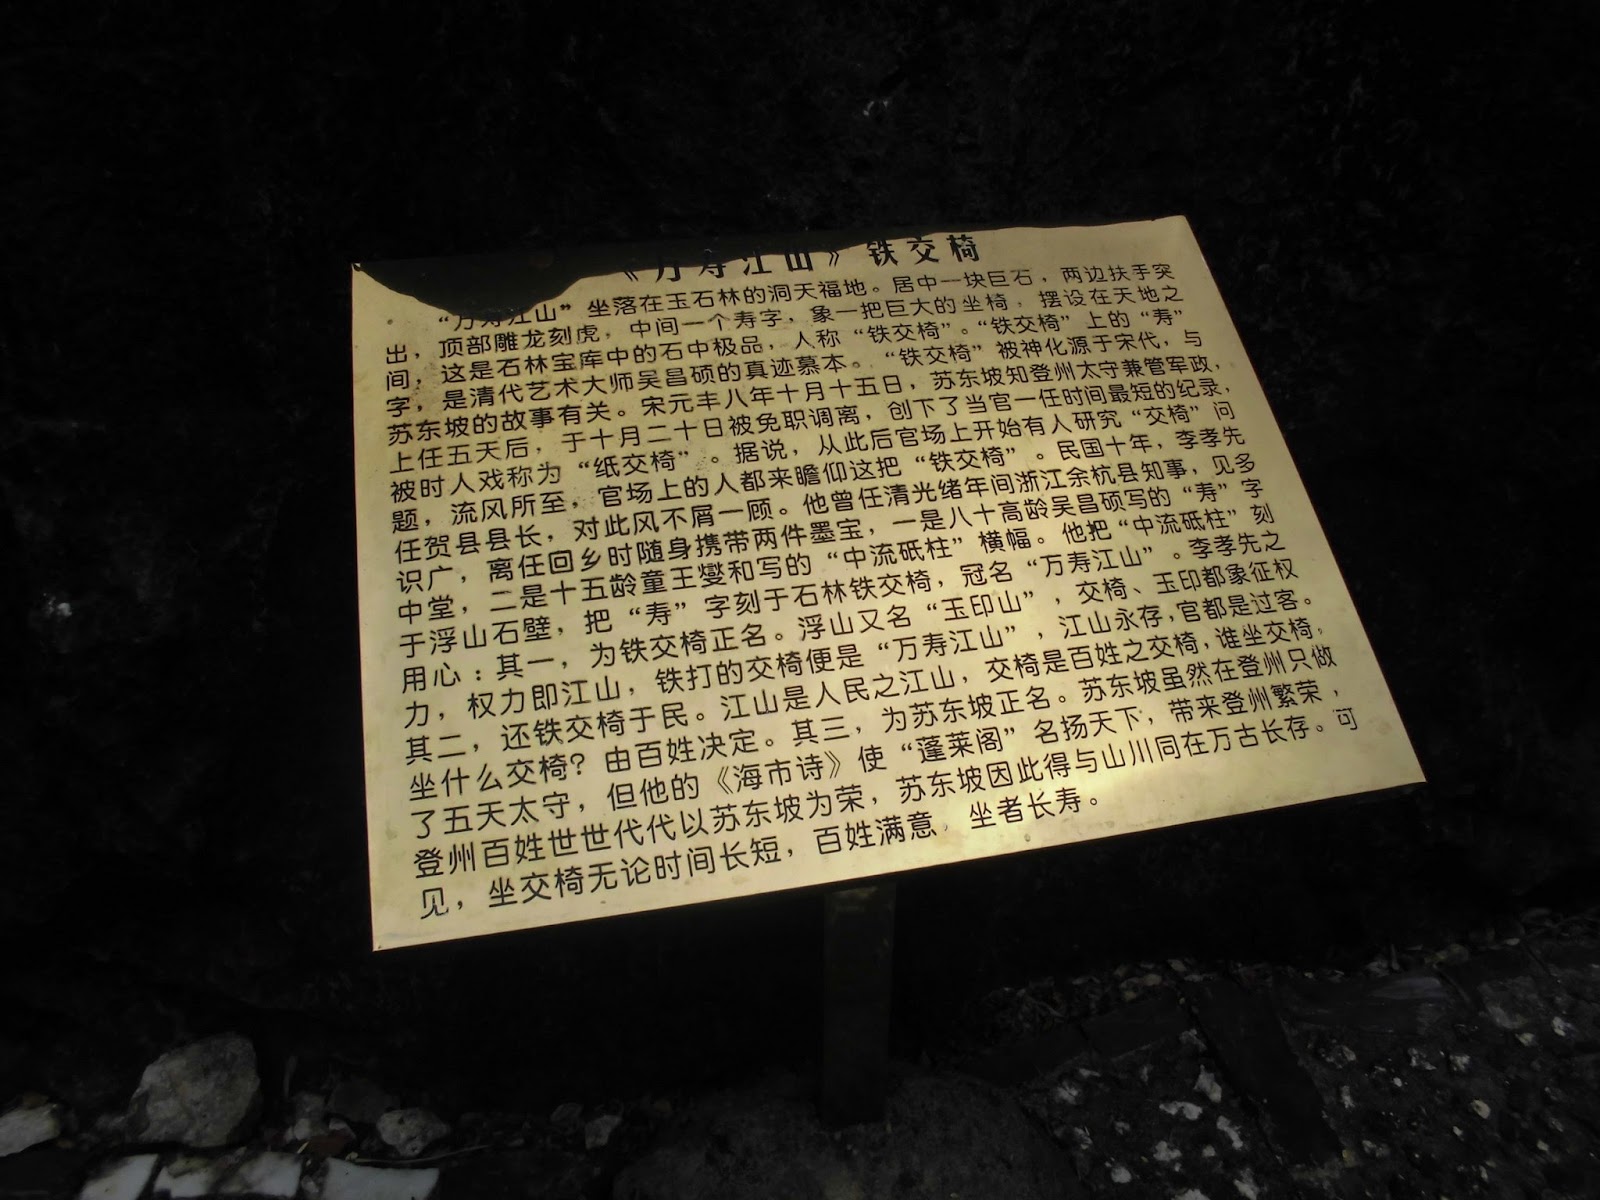 《万寿江山》铁交椅
“万寿江山”坐落在玉石林的洞天福地。居中一块巨石，两边扶手突
出，顶部雕龙刻虎，中间一个寿字，象一把巨大的坐椅，摆设在天地之
间，这是石林宝库中的石中极品，人称“铁交椅”。“铁交椅”上的“寿”
字，是清代艺术大师吴昌硕的真迹慕本。“铁交椅”被神化源于宋代，与
苏东坡的故事有关。宋元丰八年十月十五日，苏东坡知登州太守兼管军政，
上任五天后，于十月二十日被免职调离，创下了当官一任时间最短的纪录，
被时人戏称为“纸交椅”。据说，从此后官场上开始有人研究“交椅”问
题，流风所至，官场上的人都来瞻仰这把“铁交椅”。民国十年，李孝先
任贺县县长，对此风不屑一顾。他曾任清光绪年间浙江余杭县知事，见多
识广，离任回乡时随身携带两件墨宝，一是八十高龄吴昌硕写的“寿”字
中堂，二是十五龄童王燮和写的“中流砥柱”横幅。他把“中流砥柱”刻
于浮山石壁，把“寿”字刻于石林铁交椅，冠名“万寿江山”。李孝先之
用心：其一，为铁交椅正名。浮山又名“玉印山”，交椅、玉印都象征权
力，权力即江山，铁打的交椅便是“万寿江山”，江山永存，官都是过客。
其二，还铁交椅于民。江山是人民之江山，交椅是百姓之交椅，谁坐交椅，
坐什么交椅？由百姓决定。其三，为苏东坡正名。苏东坡虽然在登州只做
了五天太守，但他的《海市诗》使“蓬莱阁”名扬天下，带来登州繁荣，
登州百姓世世代代以苏东坡为荣，苏东坡因此得与山川同在万古长存。可
见，坐交椅无论时间长短，百姓满意，坐者长寿。